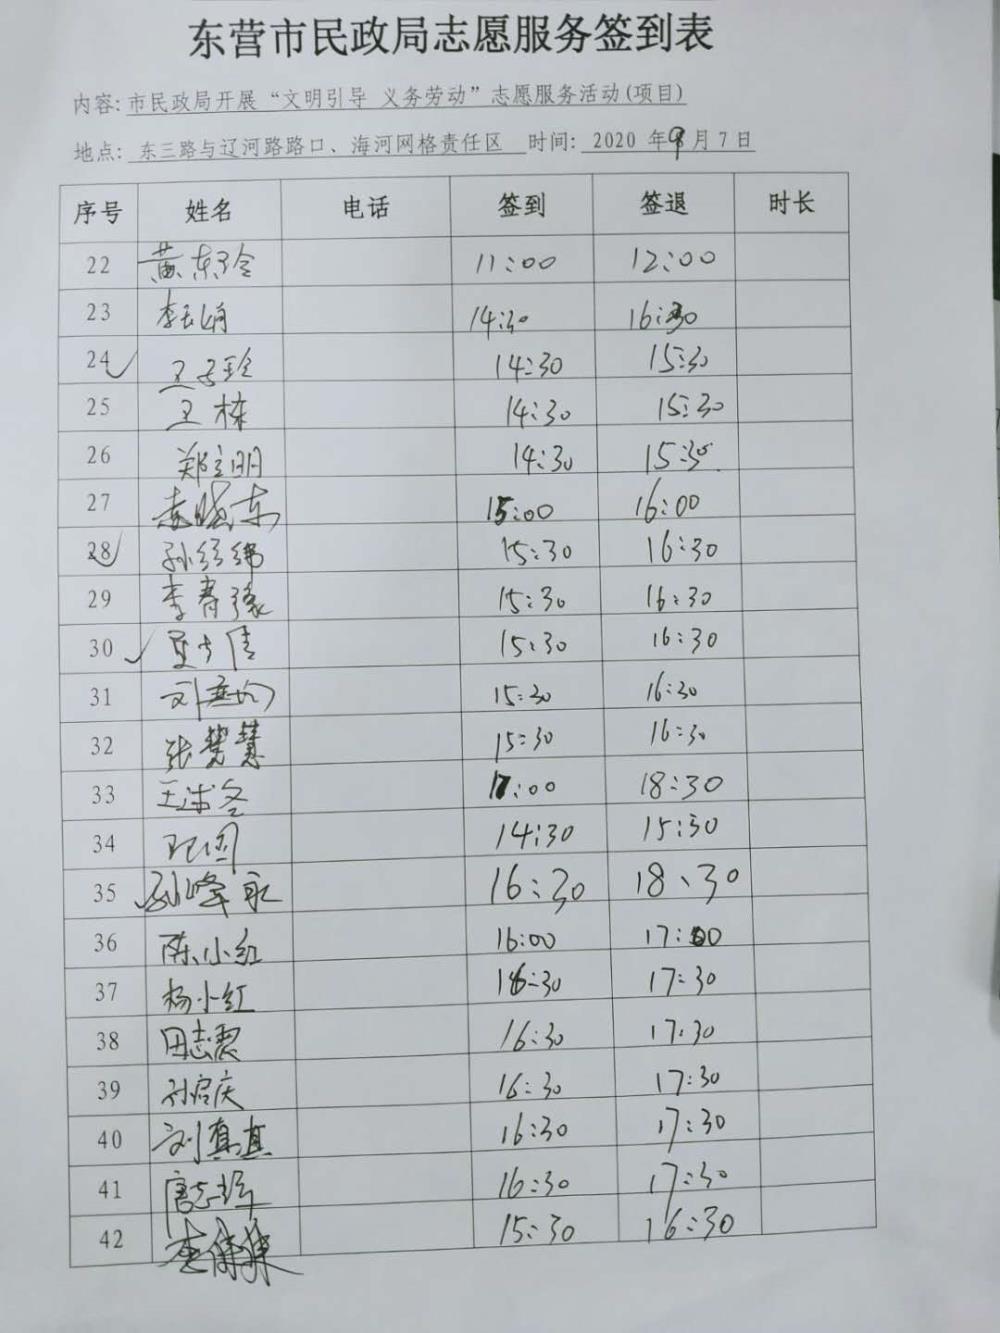 东营市民政局志愿服务签到表
内容: 市民政局开展“文明引导 义务劳动”志愿服务活动(项目)
地点: 东三路与辽河路路口、海河网格责任区 时间: 2020 年9月7日
序号 姓名 电话 签到 签退 时长
22 黄东玲 11:00 12:00
23 李 娟 14:30 16:30
24 王 珍 14:30 15:30
25 王栋 14:30 15:30
26 郑立明 14:30 15:30
27 李晓东 15:00 16:00
28 孙经纬 15:30 16:30
29 李春 15:30 16:30
30 15:30 16:30
31 刘 15:30 16:30
32 张慧慧 15:30 16:30
33 王 冬 17:00 18:30
34 14:30 15:30
35 孙峰永 16:30 18、30
36 陈小红 16:00 17:00
37 杨小红 16:30 17:30
38 田志 16:30 17:30
39 孙启庆 16:30 17:30
40 刘真真 16:30 17:30
41 唐志 16:30 17:30
42 李 15:30 16:30